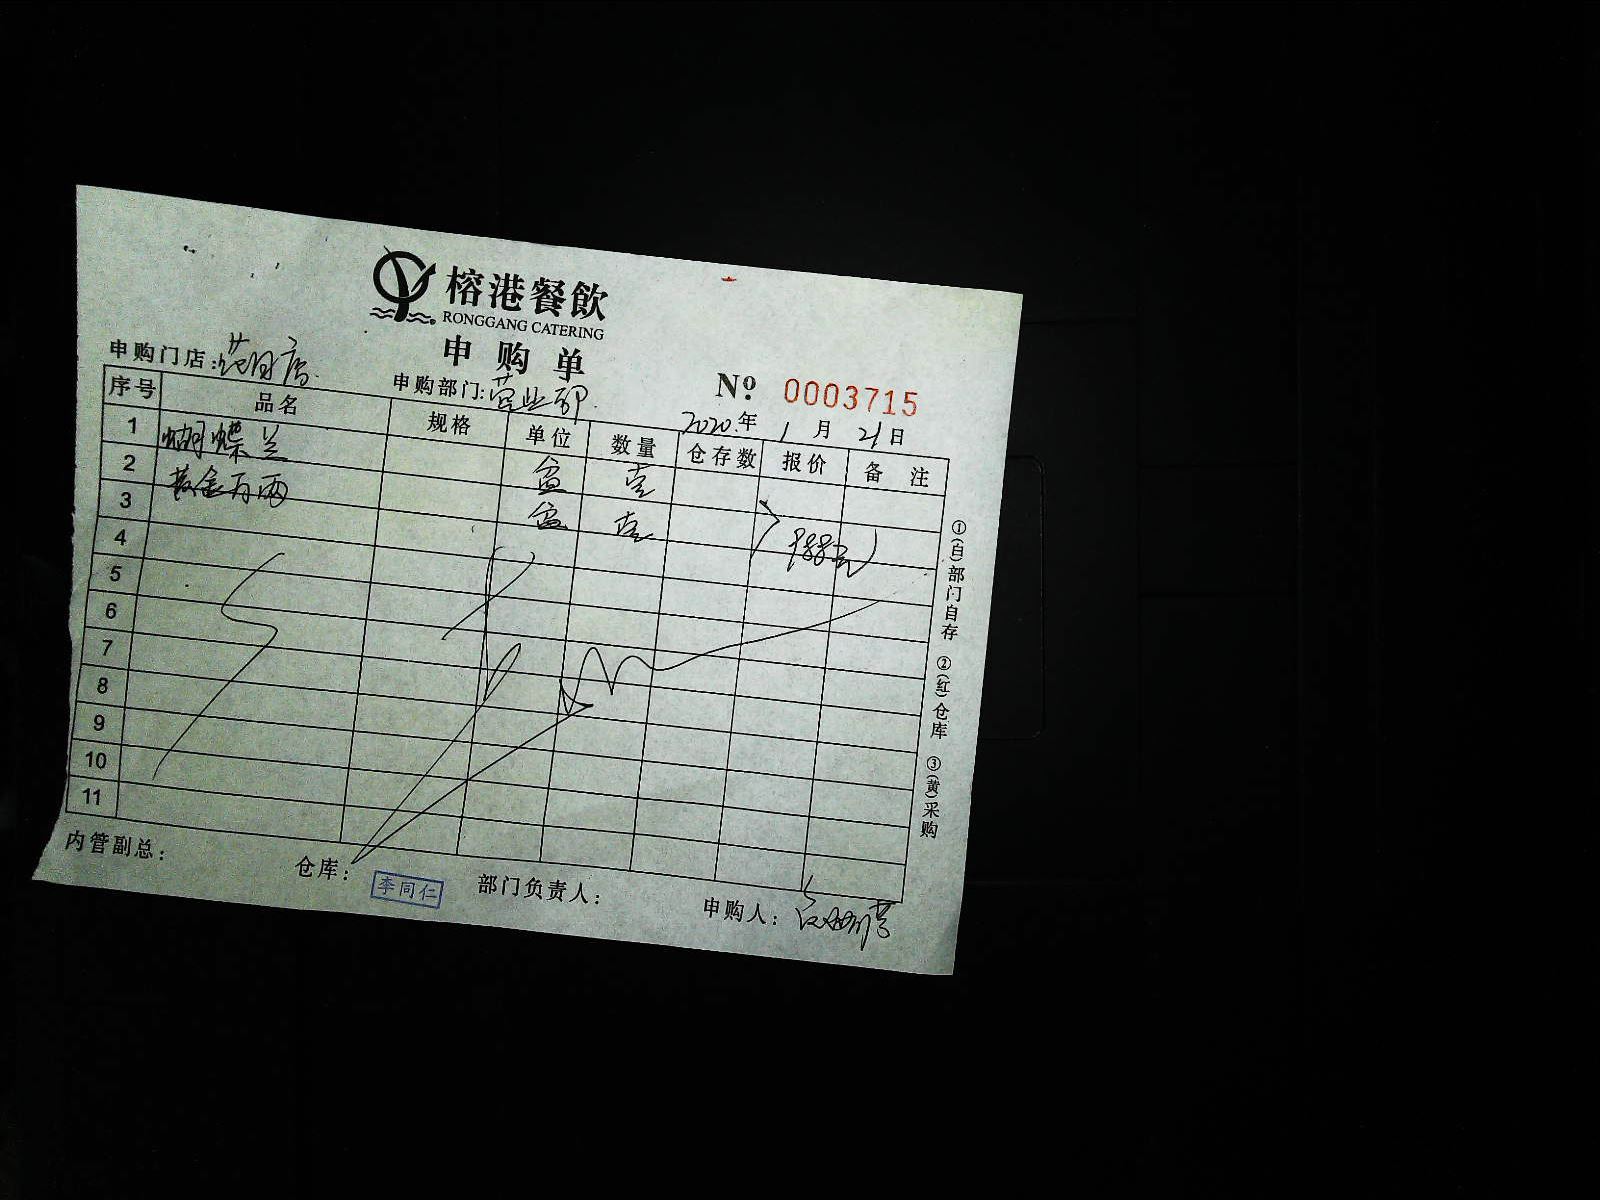 榕港餐飲
RONGGANG CATERING
申购单
申购门店: 店
申购部门: 营业部
№ 0003715
2020年 1月 21日
序号 品名 规格 单位 数量 仓存数 报价 备注
1 蝴蝶兰 盆 壹
2 黄金万两 盆 壹
3 988元
4
5
6
7
8
9
10
11
内管副总:
仓库: 李同仁
部门负责人:
申购人:
①(白)部门自存 ②(红)仓库 ③(黄)采购